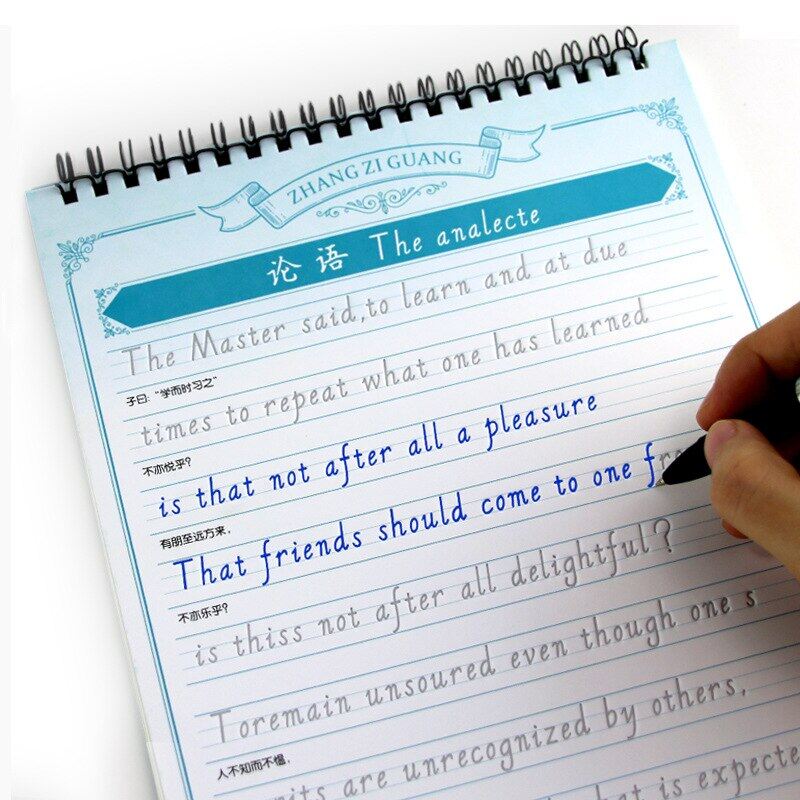 ZHANG ZI GUANG
论语 The analecte
The Master said,to learn and at due
子曰："学而时习之"
times to repeat what one has learned
不亦悦乎？
is that not after all a pleasure
有朋至远方来，
That friends should come to one
不亦乐乎？
is thiss not after all delightful?
Toremain unsoured even though one s
人不知而不愠，
are unrecognized by others,
is expecte